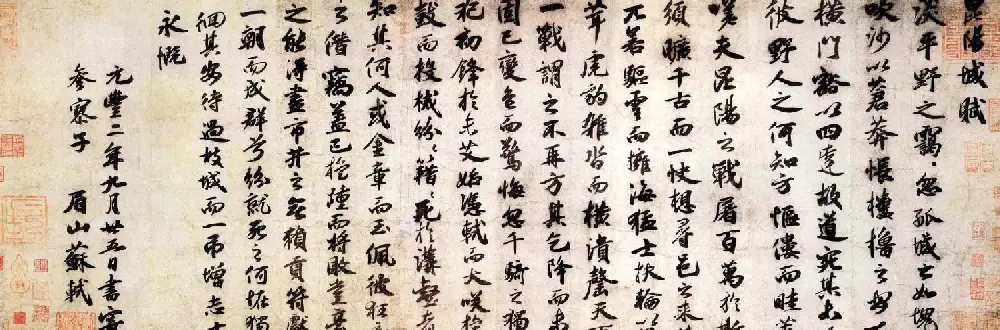 昆陽城賦
淡平野之靄〻忽孤城之如塊
吹沙以蒼莽悵樓櫓之
橫門豁以四達故道宛其未
彼野人之何知方傴僂而畦
嗟夫昆陽之戰屠百萬於斯
須曠千古而一快想尋邑之來
兀若驅雲而擁海猛士扶輪以
茸虎豹雜沓而橫潰罄天
一戰謂之不再方其乞降而未
固已變色而驚悔忽千騎之獨
犯初鋒於未艾始憑軾而大笑旋
鼓而投械紛〻籍〻死於溝壑者
知其何人或金章而玉佩彼狂
之僭竊蓋已旋踵而將敗豈豪
之能得盡市井之無賴貢符獻
一朝而成群兮紛就死之何怪獨
徊其安待過故城而一弔增志士
永慨
元豐二年九月廿五日書寄
參寥子 眉山蘇軾